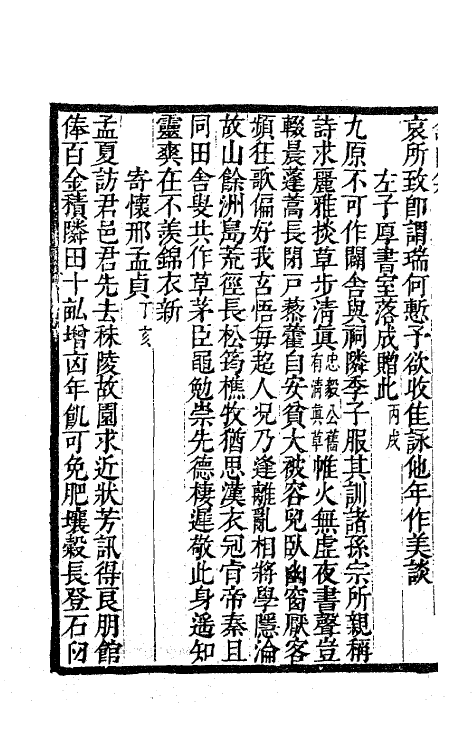 哀所致即謂瑞何慙予欲收隹詠他年作美談
左子厚書室落成贈此丙戌
九原不可作闢舍與祠隣季子服其訓諸孫宗所親稱
詩求麗雅掞草步清真忠毅公舊有清真草帷火無虛夜書聲豈
輟晨蓬蒿長閉戸藜藿自安貧大被容兒臥幽窗厭客
頻狂歌偏好我玄悟每超人況乃逢離亂相將學隱淪
故山餘洲島荒徑長松筠樵牧猶思漢衣冠肯帝秦且
同田舍叟共作草茅臣黽勉崇先德棲遲敬此身遥知
靈爽在不羨錦衣新
寄懷邢孟貞丁亥
孟夏訪君邑君先去秣陵故園求近狀芳訊得良朋館
俸百金積隣田十畝增凶年飢可免肥壤穀長登石臼